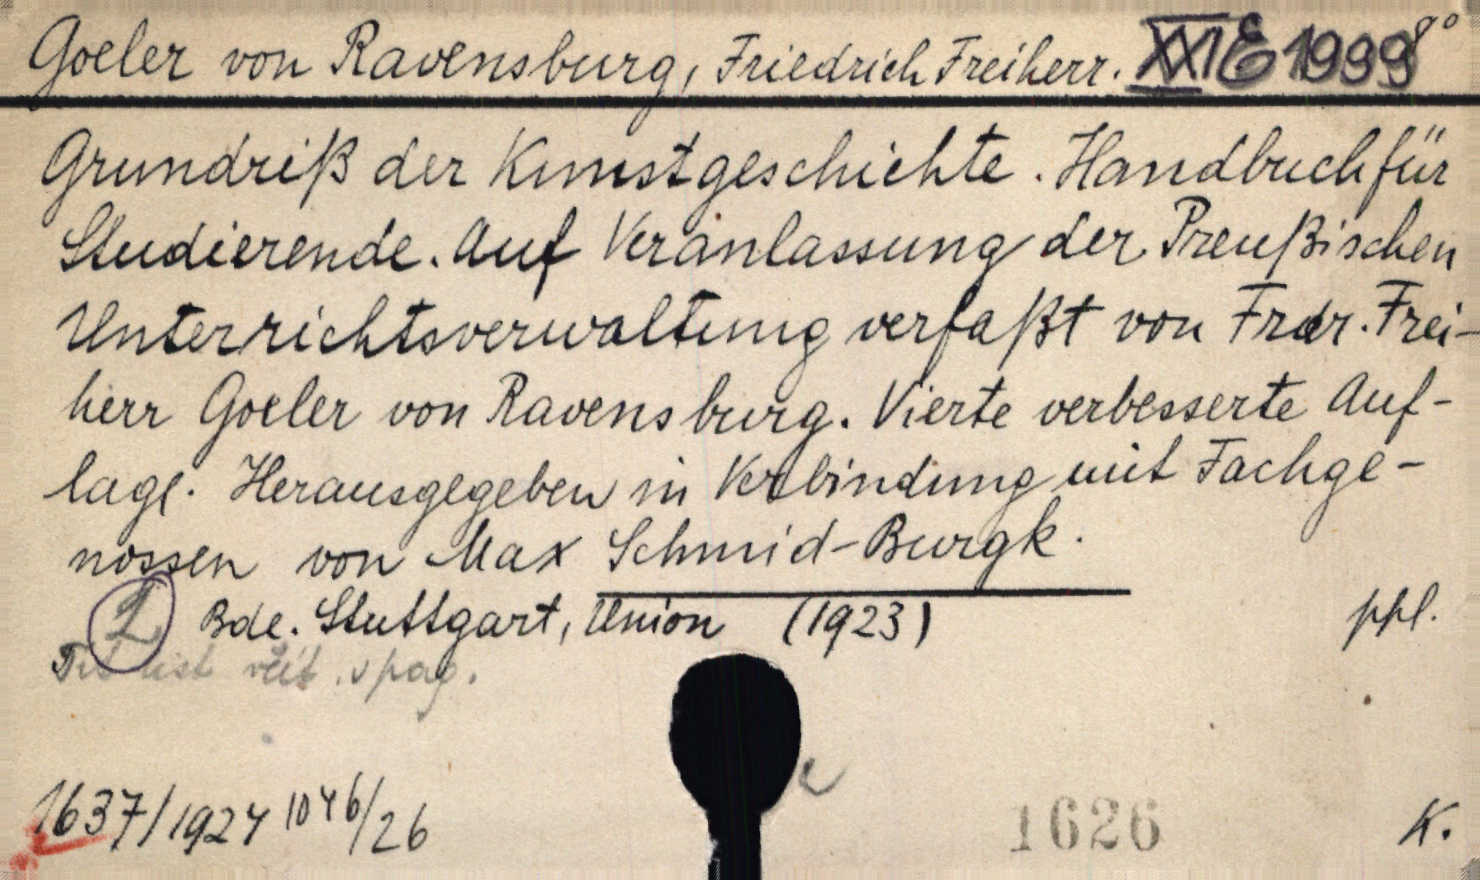 Goeler von Ravensburg, Friedrich Freiherr. XXI E 1999 8°
Grundriß der Kunstgeschichte. Handbuch für
Studierende. Auf Veranlassung der Preußischen
Unterrichtsverwaltung verfaßt von Frdr. Frei-
herr Goeler von Ravensburg. Vierte verbesserte Auf-
lage. Herausgegeben in Verbindung mit Fachge-
nossen von Max Schmid-Burgk.
2 Bde. Stuttgart, Union (1923) ppl.
1637/1924 1046/26 1626 K.